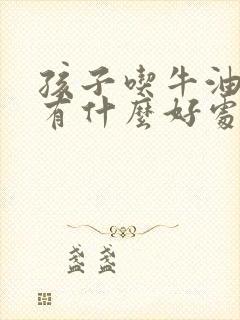 孩子喫牛油
有什麼好處
盞盞